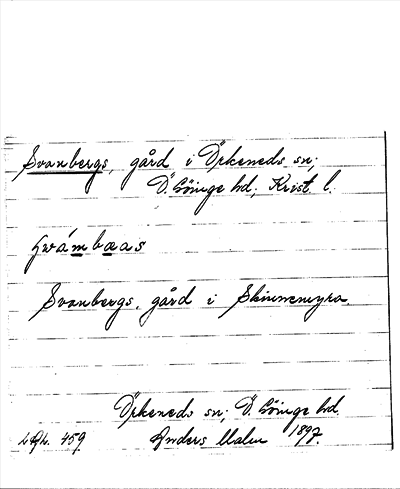 Svanbergs, gård i Örkeneds sn;
Ö. Göinge hd; Krist. l.
Svanbergs, gård i Skinnemyra.
Örkeneds sn; Ö. Göinge hd.
459. Anders Malm 1897.